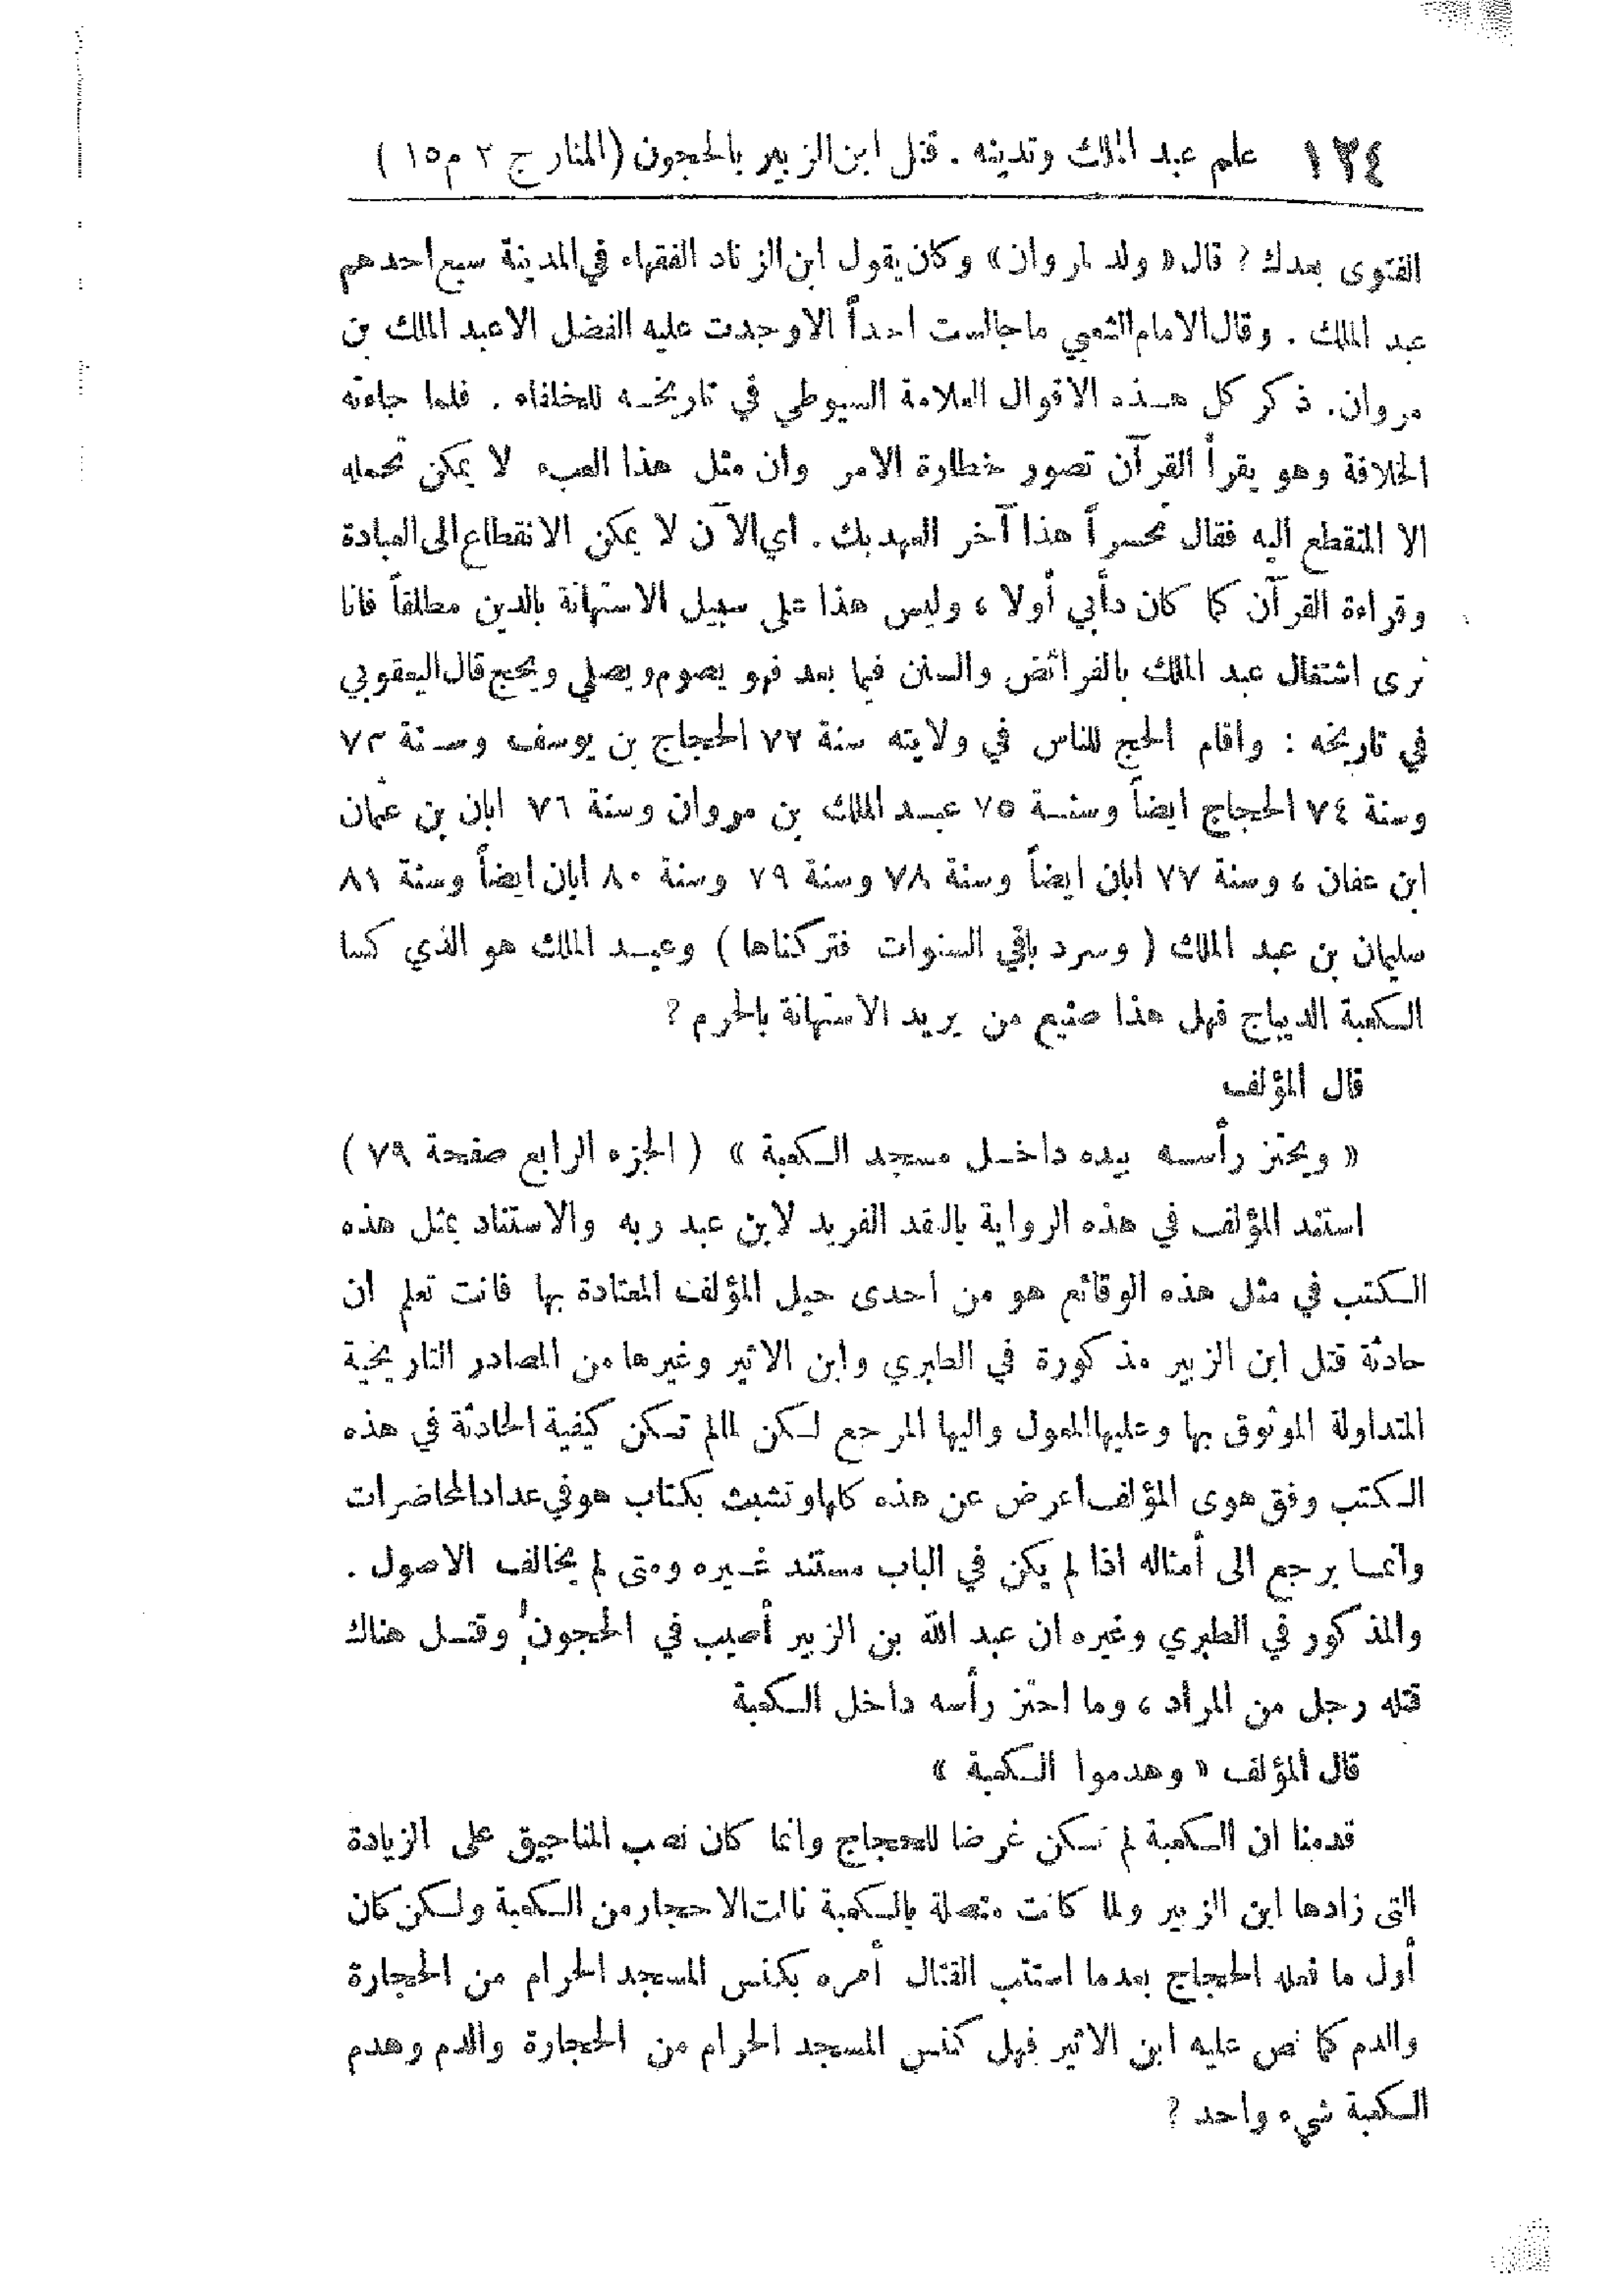 ١٢٤ علم عبد الملك وتدينه . قتل ابن الزبير بالحجون (المنار ج ٢ م ١٥ )
الفتوى بعدك ؟ قال « ولد لمروان » وكان يقول ابن الزناد الفقهاء في المدينة سبع احدهم
عبد الملك . وقال الامام الشعبي ما جالست احداً الا وجدت عليه الفضل الا عبد الملك بن
مروان . ذكر كل هـذه الاقوال العلامة السيوطي في تاريخـه للخلفاء . فلما جاءته
الخلافة وهو يقرأ القرآن تصور خطارة الامر وان مثل هذا العبء لا يمكن تحمله
الا المنقطع اليه فقال تحسراً هذا آخر العهد بك . اي الآن لا يمكن الانقطاع الى العبادة
وقراءة القرآن كما كان دأبي أولا ، وليس هذا على سبيل الاستهانة بالدين مطلقاً فانا
نرى اشتغال عبد الملك بالفرائض والسنن فيما بعد فهو يصوم ويصلي ويحج قال اليعقوبي
في تاريخه : واقام الحج للناس في ولايته سنة ٧٢ الحجاج بن يوسف وسـنة ٧٣
وسنة ٧٤ الحجاج ايضاً وسنـة ٧٥ عبـد الملك بن مروان وسنة ٧٦ ابان بن عثمان
ابن عفان ، وسنة ٧٧ ابان ايضاً وسنة ٧٨ وسنة ٧٩ وسنة ٨٠ ابان ايضاً وسنة ٨١
سليمان بن عبد الملك ( وسرد باقي السنوات فتركناها ) وعبـد الملك هو الذي كسا
الـكعبة الديباج فهل هذا صنيع من يريد الاستهانة بالحرم ؟
قال المؤلف
« ويحتز رأسـه بيده داخـل مسجد الـكعبة » ( الجزء الرابع صفحة ٧٩ )
استند المؤلف في هذه الرواية بالعقد الفريد لابن عبد ربه والاستناد بمثل هذه
الـكتب في مثل هذه الوقائع هو من احدى حيل المؤلف المعتادة بها فانت تعلم ان
حادثة قتل ابن الزبير مذكورة في الطبري وابن الاثير وغيرها من المصادر التاريخية
المتداولة الموثوق بها وعليها المعول واليها المرجع لـكن لما لم تـكن كيفية الحادثة في هذه
الـكتب وفق هوى المؤلف اعرض عن هذه كلها وتشبث بكتاب هو في عداد المحاضرات
وانمـا يرجع الى أمثاله اذا لم يكن في الباب مستند غـيره ومتى لم يخالف الاصول .
والمذكور في الطبري وغيره ان عبد الله بن الزبير أصيب في الحجون وقتـل هناك
قتله رجل من المراد ، وما احتز رأسه داخل الـكعبة
قال المؤلف « وهدموا الـكعبة »
قدمنا ان الـكعبة لم تـكن غرضا للحجاج وانما كان نصب المناجيق على الزيادة
التى زادها ابن الزبير ولما كانت متصلة بالـكعبة نالت الاحجار من الـكعبة ولـكن كان
أول ما فعله الحجاج بعدما استتب القتال أمره بكنس المسجد الحرام من الحجارة
والدم كما نص عليه ابن الاثير فهل كنس المسجد الحرام من الحجارة والدم وهدم
الـكعبة شيء واحد ؟